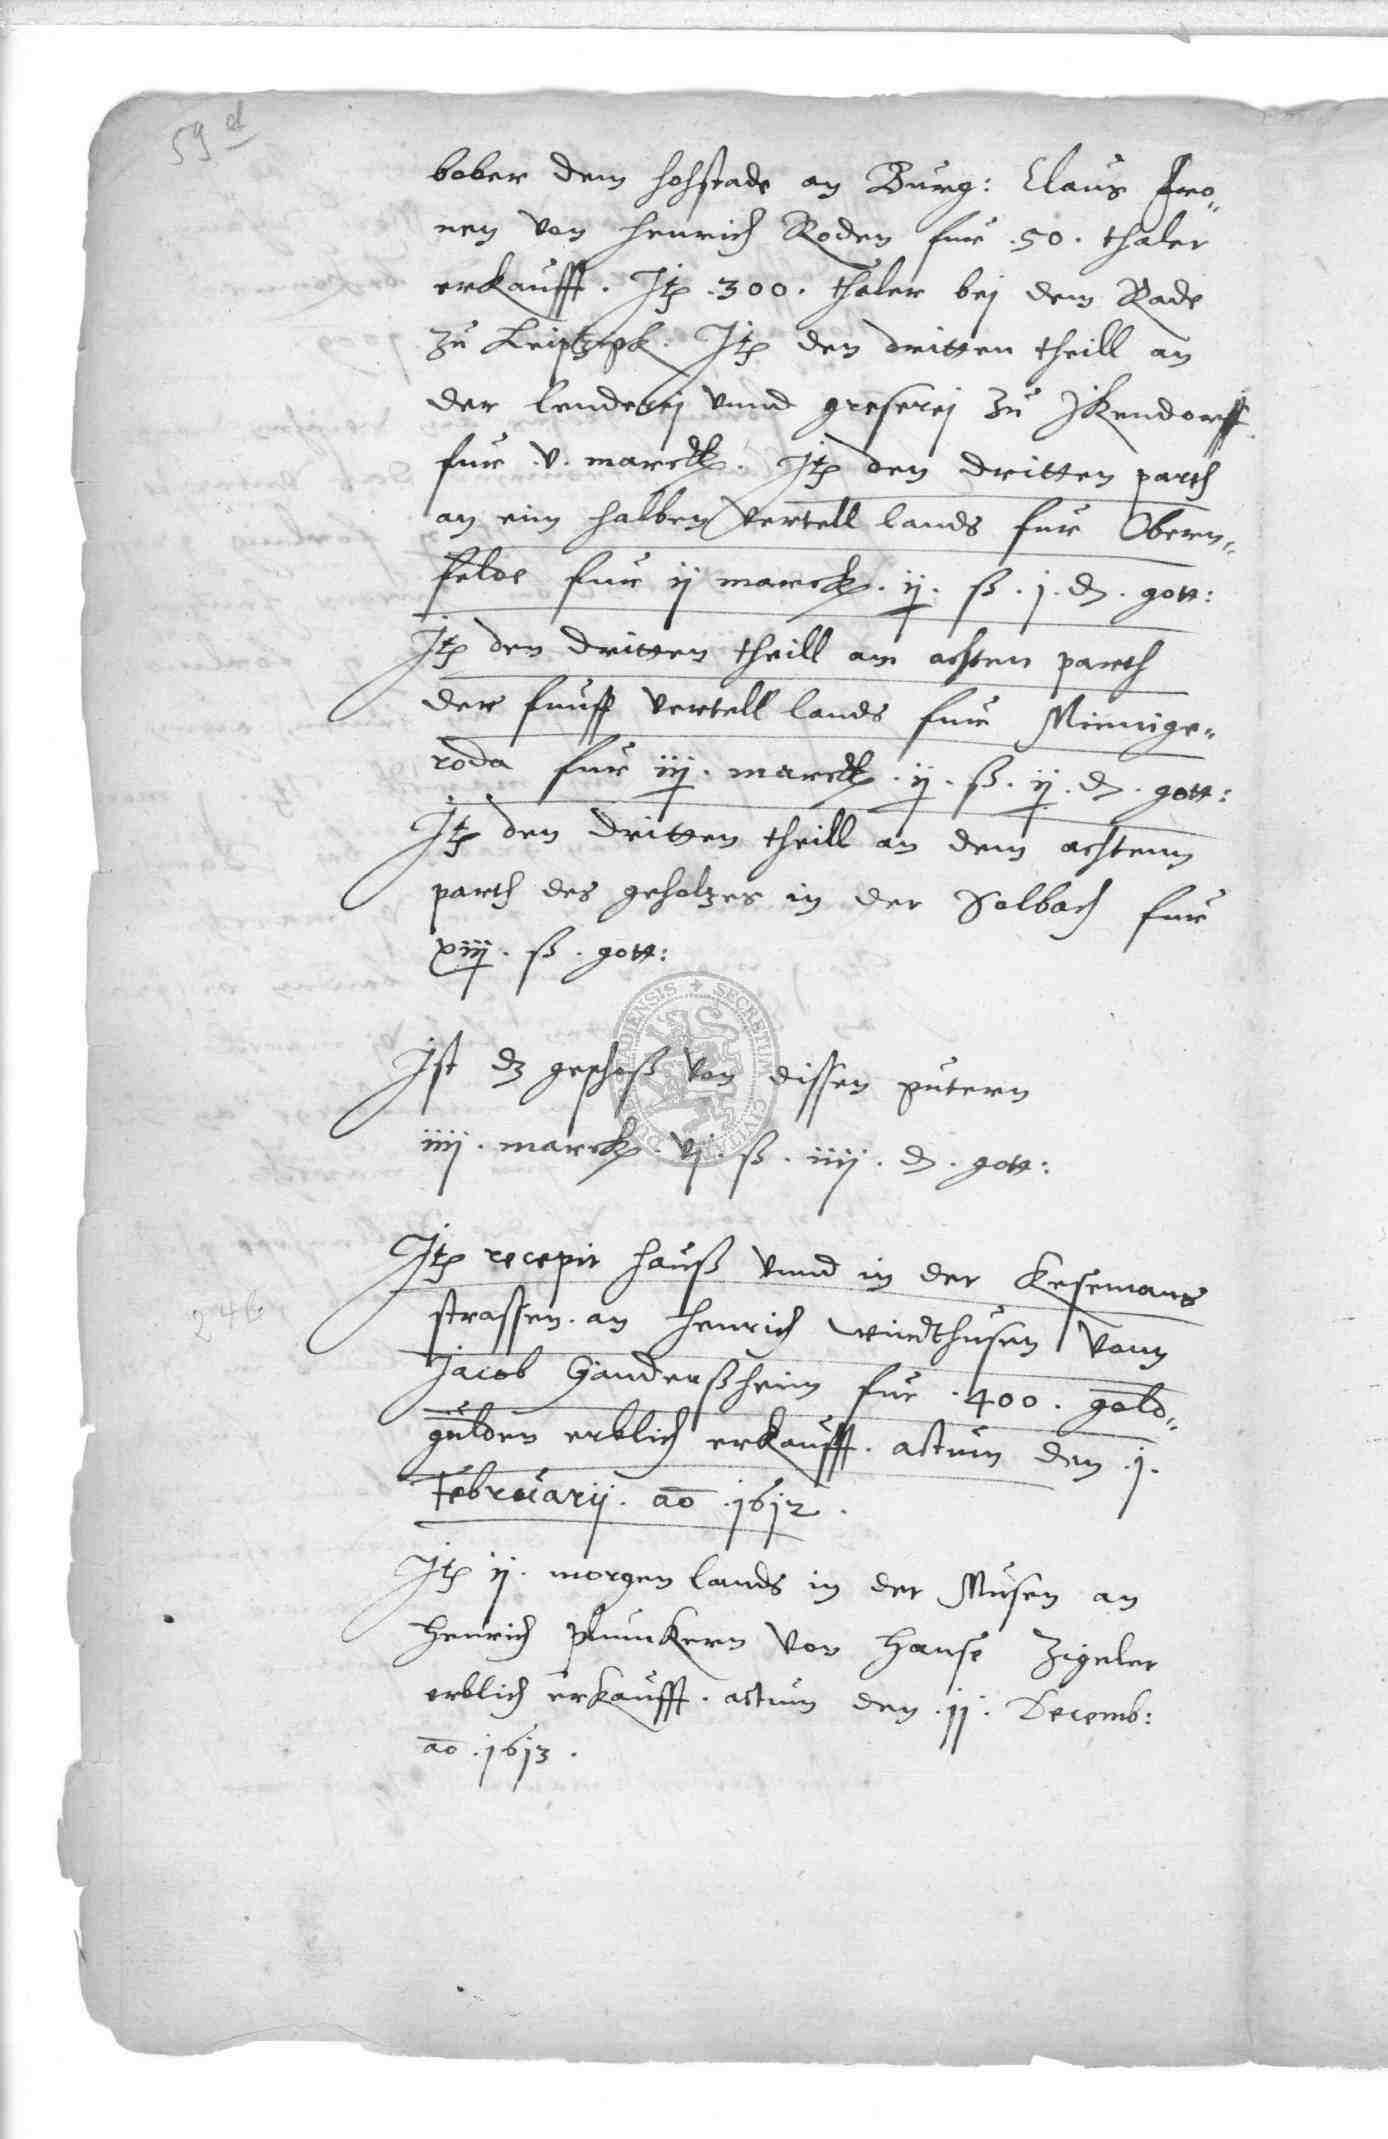 59 d
bober dem hohstade an Burg: Claus Fro„
nen von Henrich Roden fur .50. thaler
erkaufft. Itz .300. thaler bei dem Rade
zu Leiptzigk. Itz den dritten theill an
der lenderej vnnd greserej zu Ikendorff
fur .v. marck. Itz den dritten parth
an eim halben vertell lands fur Obern„
felde fur ij marck. ij. ß. j. d. gott:
Itz den dritten theill am achten parth
der funff vertell lands fur Minnige„
roda fur iij. marck. ij. ß. ij. d. gott:
Itz den dritten theill an dem achtenn
parth des geholtzes in der Solbach fur
xiij. ß. gott:
Ist dz geschoß von dissen gutern
iiij. marck. vj. ß. iiij. d. gott:
Itz recepit hauß vnnd in der Kesemans
strassen. an Henrich windthusen vonn
Jacob Ganderßheim fur .400. gold„
gulden erblich erkaufft. actum den .j.
Februarij. ao .1612.
246
Itz ij. morgen lands in der Musen an
Henrich plumkern von Hanse Zigeler
erblich erkaufft. actum den .jj. Decemb:
ao .1613.
SECRETUM CIVITA